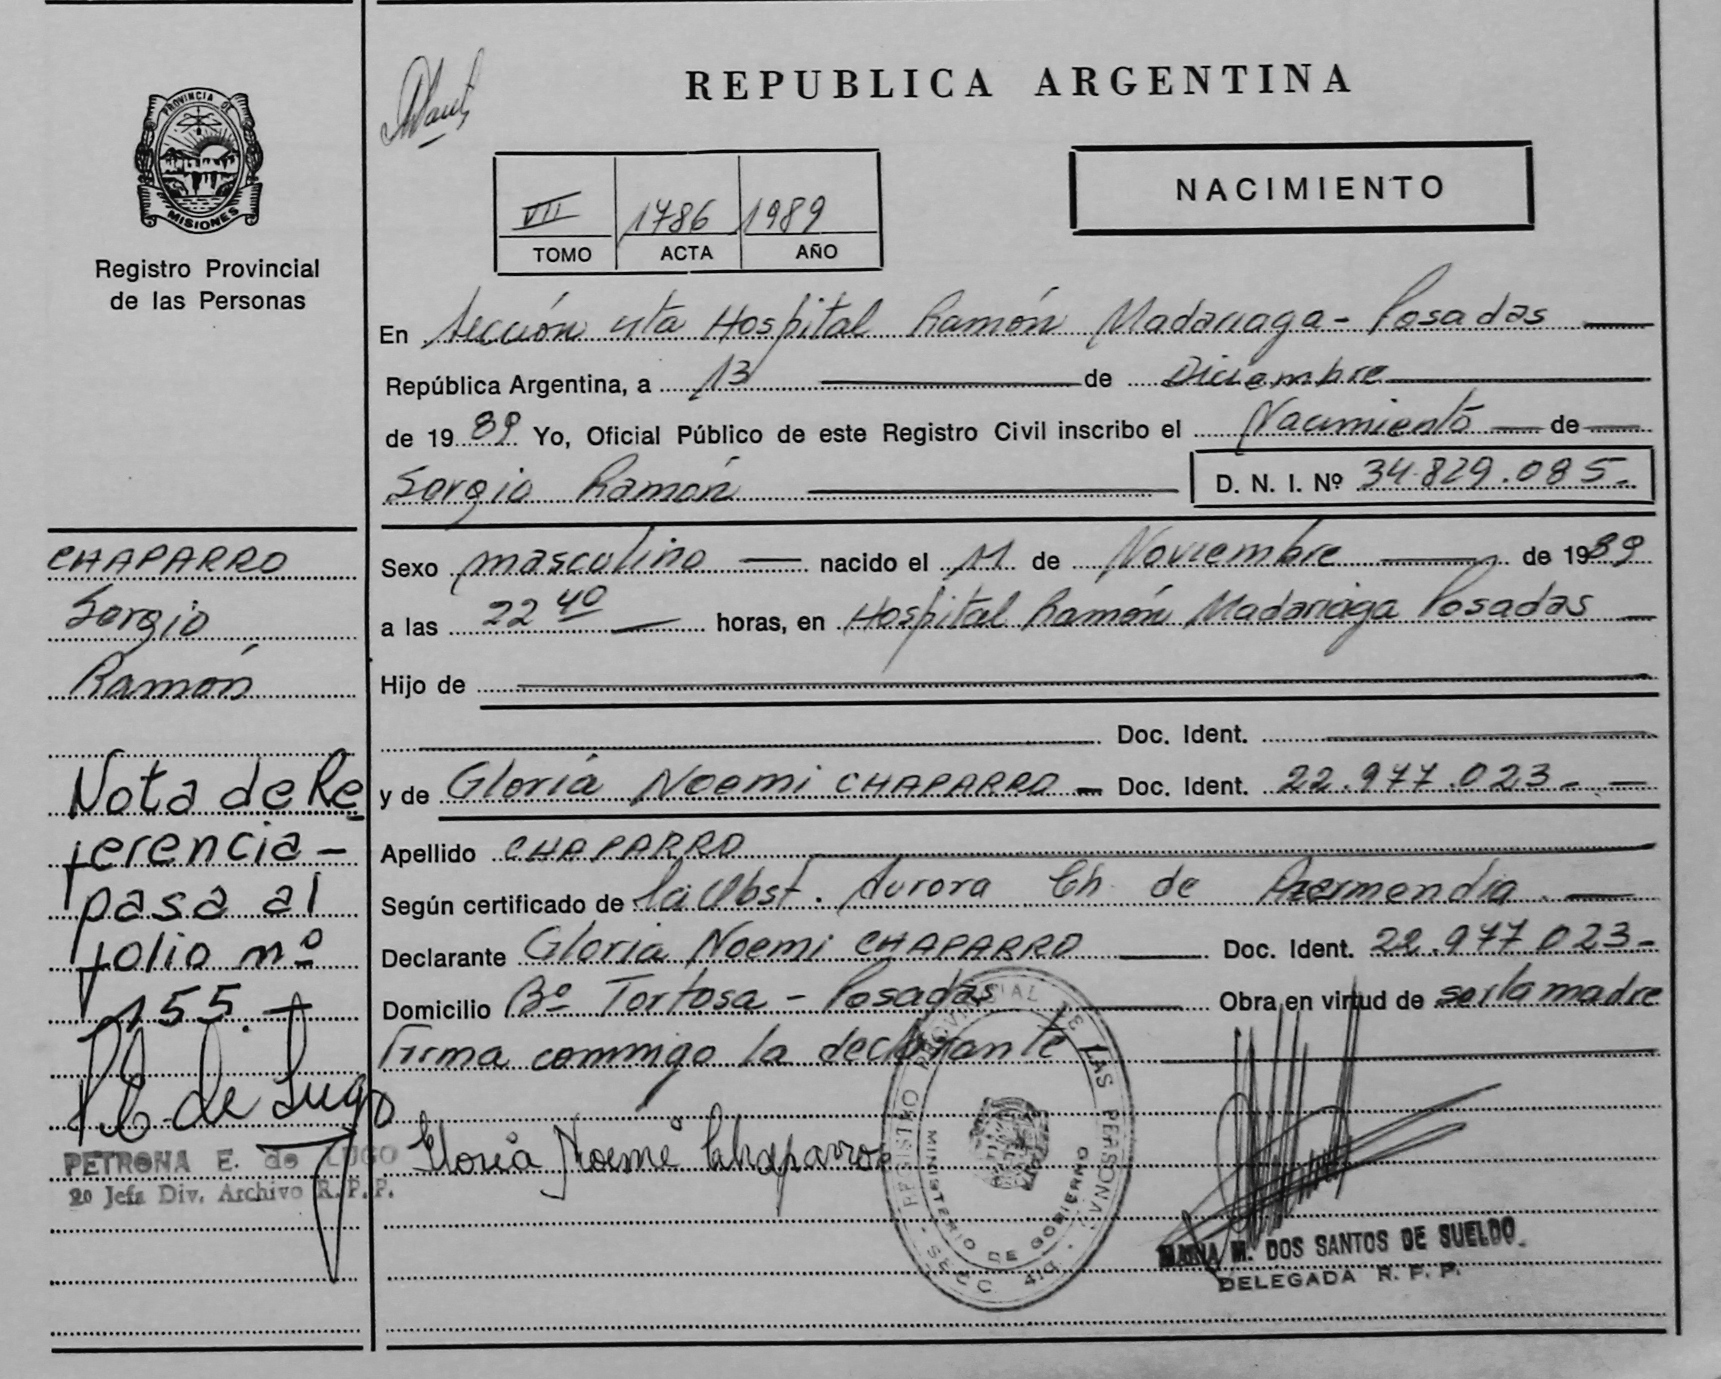 REPUBLICA ARGENTINA
PROVINCIA DE
MISIONES
Registro Provincial
de las Personas
VII 1786 1989
TOMO ACTA AÑO
NACIMIENTO
En Sección 4ta Hospital Ramón Madariaga - Posadas
República Argentina, a 13 de Diciembre
de 1989 Yo, Oficial Público de este Registro Civil inscribo el Nacimiento de
Sergio Ramón D. N. I. Nº 34.829.085.-
CHAPARRO
Sergio
Ramón
Sexo masculino nacido el 11 de Noviembre de 1989
a las 22 40 horas, en Hospital Ramón Madariaga Posadas
Hijo de
Doc. Ident.
y de Gloria Noemi CHAPARRO - Doc. Ident. 22.977.023-
Apellido CHAPARRO
Según certificado de la Obst. Aurora Ch de Azermendia.
Declarante Gloria Noemi CHAPARRO Doc. Ident. 22.977.023-
Domicilio Bº Tortosa - Posadas Obra en virtud de ser la madre
Firma conmigo la declarante
Nota de Re
ferencia -
pasa al
folio nº
155.-
P E. de Lugo
PETRONA E. de LUGO
2º Jefa Div. Archivo R.P.P.
Gloria Noemi Chaparro
REGISTRO PROVINCIAL DE LAS PERSONAS
MINISTERIO DE GOBIERNO
SECC. 4ta.
MARIA M. DOS SANTOS DE SUELDO
DELEGADA R. P. P.